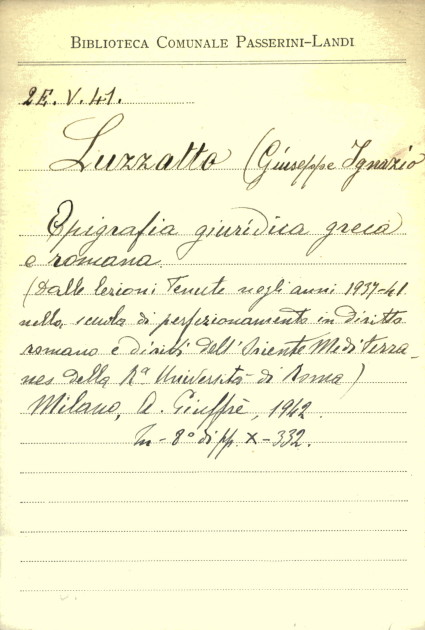 BIBLIOTECA COMUNALE PASSERINI-LANDI
2E. V. 41.
Luzzatto (Giuseppe Ignazio
Epigrafia giuridica greca
e romana.
(Dalle lezioni tenute negli anni 1937-41
nella scuola di perfezionamento in diritto
romano e diritti dell'Oriente Mediterra-
neo della Rª Università di Roma)
Milano, A. Giuffrè, 1942
In-8° di pp. X-332.